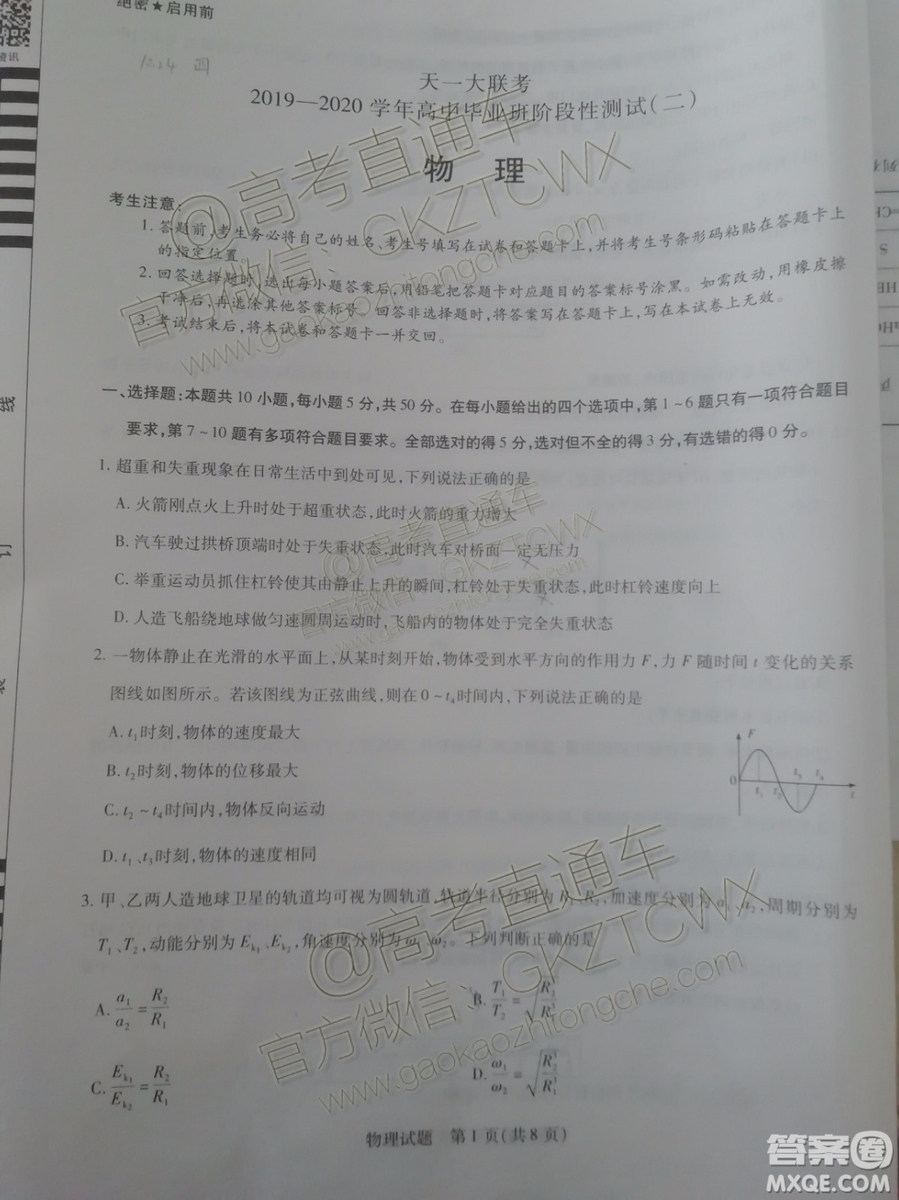 绝密★启用前
1224 周
天一大联考
2019—2020 学年高中毕业班阶段性测试(二)
物 理
考生注意:
1. 答题前,考生务必将自己的姓名、考生号填写在试卷和答题卡上,并将考生号条形码粘贴在答题卡上
的指定位置
2. 回答选择题时,选出每小题答案后,用铅笔把答题卡对应题目的答案标号涂黑。如需改动,用橡皮擦
干净后,再选涂其他答案标号。回答非选择题时,将答案写在答题卡上,写在本试卷上无效。
3. 考试结束后,将本试卷和答题卡一并交回。
一、选择题:本题共 10 小题,每小题 5 分,共 50 分。在每小题给出的四个选项中,第 1~6 题只有一项符合题目
要求,第 7~10 题有多项符合题目要求。全部选对的得 5 分,选对但不全的得 3 分,有选错的得 0 分。
1. 超重和失重现象在日常生活中到处可见,下列说法正确的是
A. 火箭刚点火上升时处于超重状态,此时火箭的重力增大
B. 汽车驶过拱桥顶端时处于失重状态,此时汽车对桥面一定无压力
C. 举重运动员抓住杠铃使其由静止上升的瞬间,杠铃处于失重状态,此时杠铃速度向上
D. 人造飞船绕地球做匀速圆周运动时,飞船内的物体处于完全失重状态
2. 一物体静止在光滑的水平面上,从某时刻开始,物体受到水平方向的作用力 F,力 F 随时间 t 变化的关系
图线如图所示。若该图线为正弦曲线,则在 0~t₄时间内,下列说法正确的是
A. t₁时刻,物体的速度最大
B. t₂时刻,物体的位移最大
C. t₂~t₄时间内,物体反向运动
D. t₁、t₃时刻,物体的速度相同
F
0
t₁ t₂ t₃ t₄ t
3. 甲、乙两人造地球卫星的轨道均可视为圆轨道,轨道半径分别为 R₁、R₂,加速度分别为 a₁、a₂,周期分别为
T₁、T₂,动能分别为 Eₖ₁、Eₖ₂,角速度分别为 ω₁、ω₂。下列判断正确的是
A. a₁/a₂=R₂/R₁ B. T₁/T₂=√(R₂³/R₁³)
C. Eₖ₁/Eₖ₂=R₂/R₁ D. ω₁/ω₂=√(R₂³/R₁³)
物理试题 第 1 页(共 8 页)
线
订
@高考直通车
官方微信:GKZTCWX
www.gaokaozhitongche.com
@高考直通车
官方微信:GKZTCWX
@高考直通车
官方微信:GKZTCWX
www.gaokaozhitongche.com
答案圈
MXQE.COM